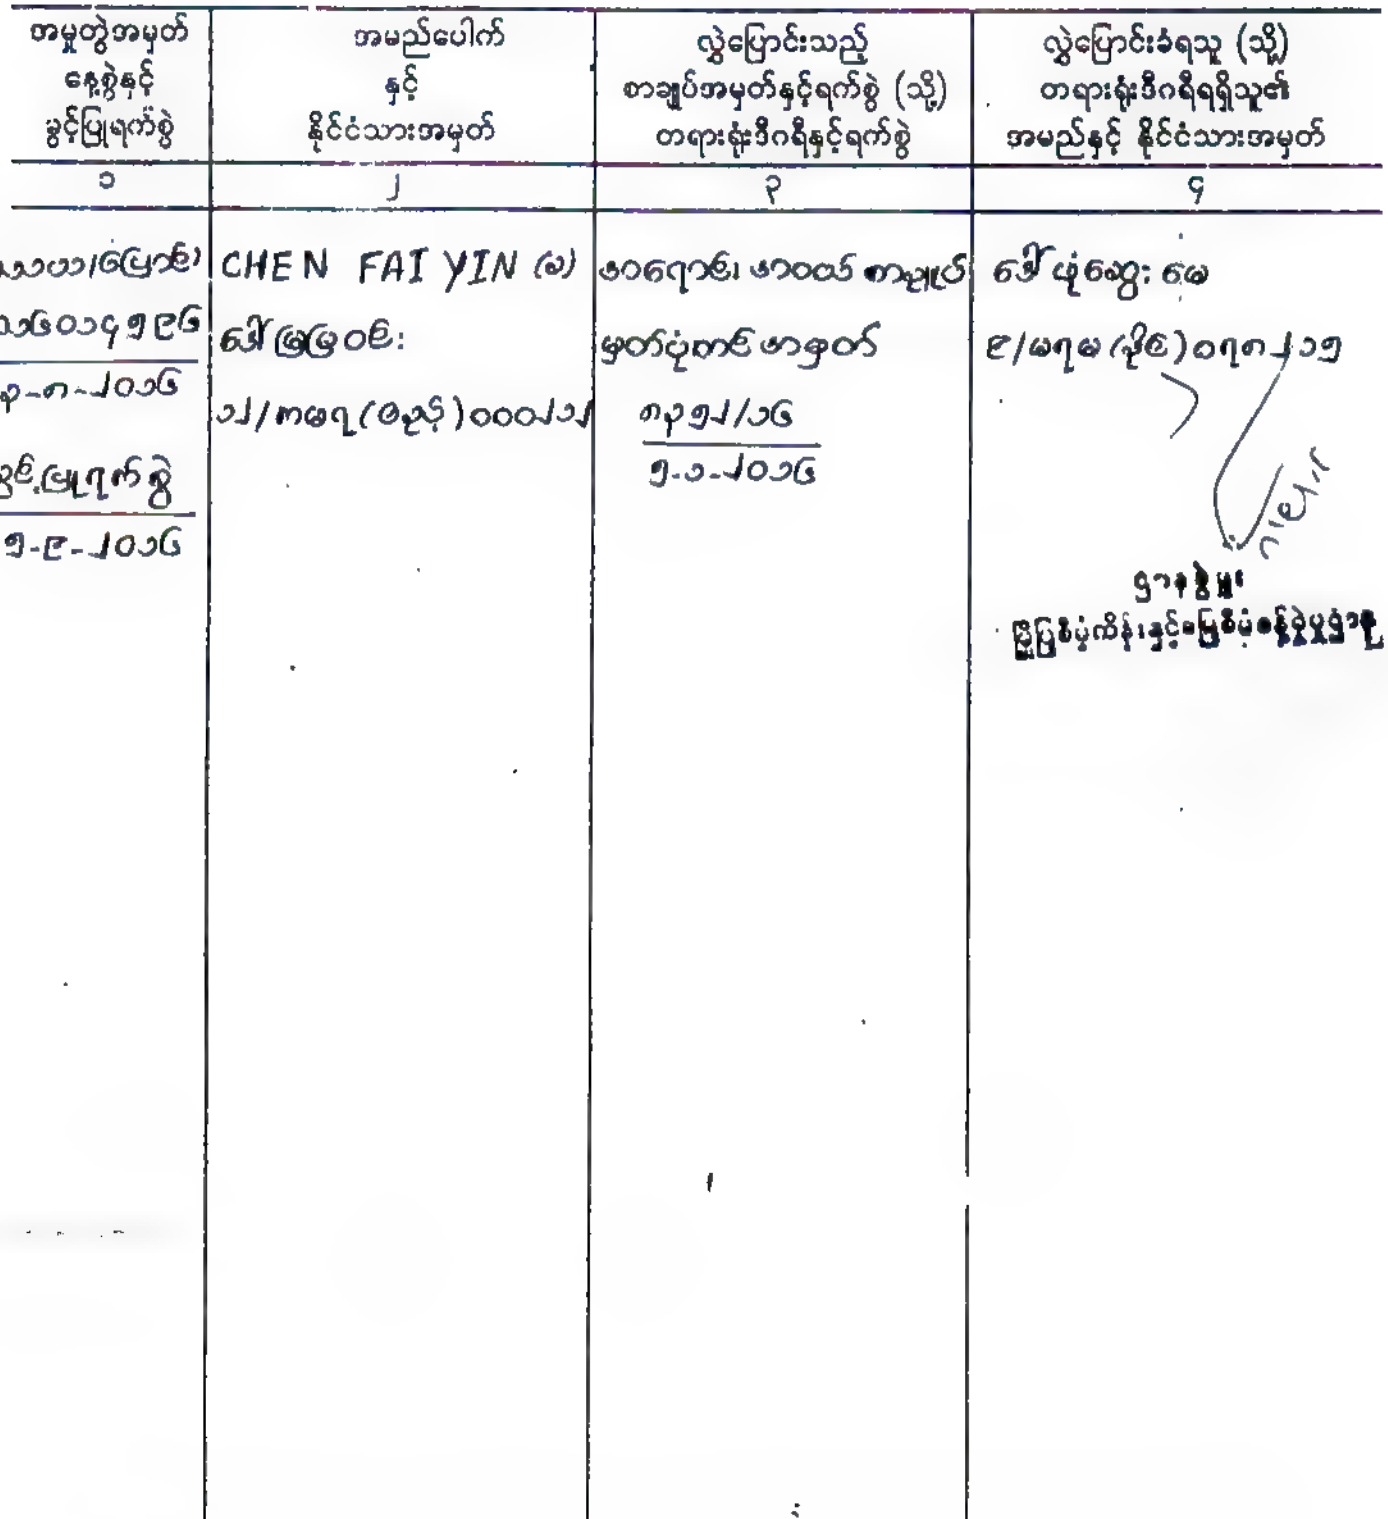 အမှုတွဲအမှတ်
နေ့စွဲနှင့်
ခွင့်ပြုရက်စွဲ
အမည်ပေါက်
နှင့်
နိုင်ငံသားအမှတ်
လွှဲပြောင်းသည့်
စာချုပ်အမှတ်နှင့်ရက်စွဲ (သို့)
တရားရုံးဒီဂရီနှင့်ရက်စွဲ
လွှဲပြောင်းခံရသူ (သို့)
တရားရုံးဒီဂရီရရှိသူ၏
အမည်နှင့် နိုင်ငံသားအမှတ်
၁
၂
၃
၄
၁၆၀၁၄၅၉၆
၃-၈-၂၀၁၆
ခွင့်ပြုရက်စွဲ
၅-၉-၂၀၁၆
CHEN FAI YIN (ခ)
ဒေါ်မြမြဝင်း
၁၂/ကမရ(ဧည့်)၀၀၀၂၁၂
အရောင်းအဝယ်စာချုပ်
မှတ်ပုံတင်အမှတ်
၈၃၅၂/၁၆
၅-၁-၂၀၁၆
ဒေါ်ဖုံဆွေးမေ
၉/မရမ(နိုင်)၀၇၈၂၁၅
ဌာနခွဲမှူး
မြို့ပြစီမံကိန်းနှင့်မြေစီမံခန့်ခွဲမှုဌာန